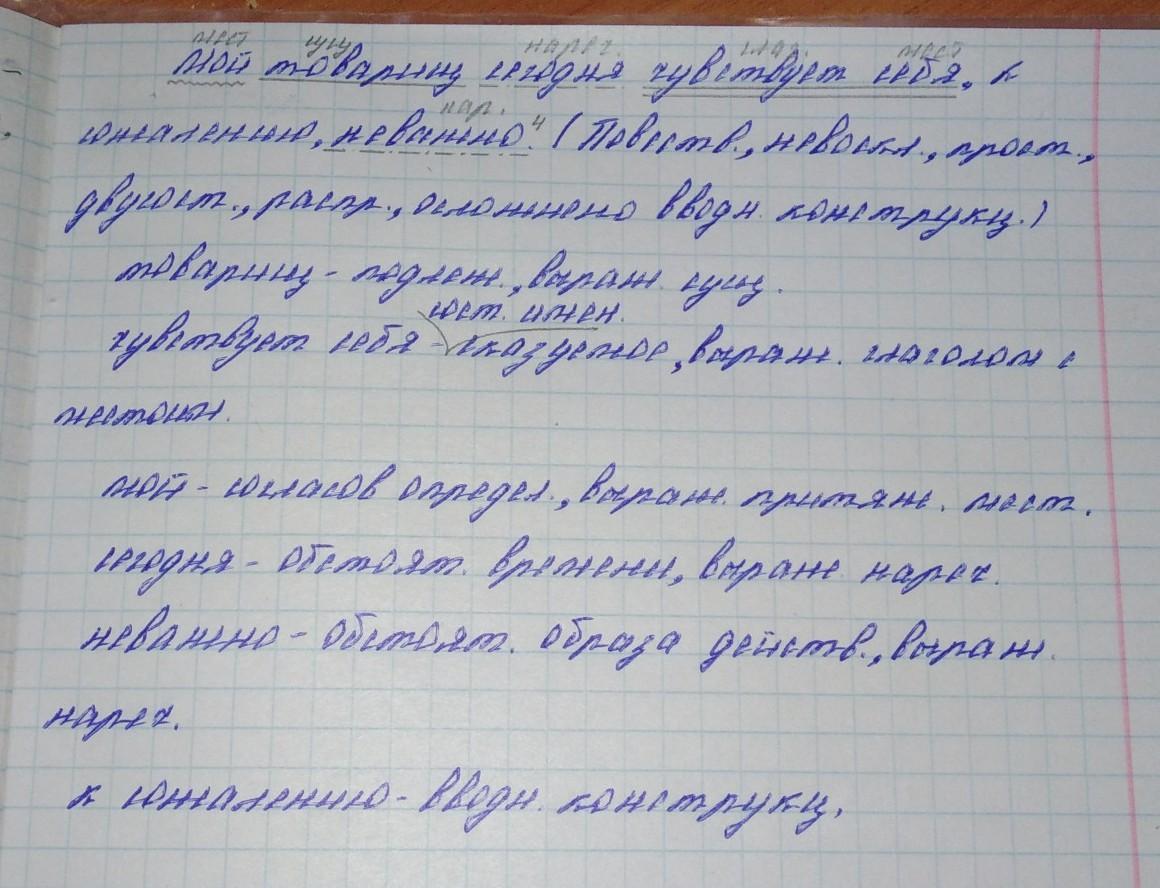 мест сущ нареч. глаг. мест
Мой товарищ сегодня чувствует себя, к
нар.
сожалению, неважно.⁴ (Повеств., невоскл., прост.,
двусост., распр., осложнено вводн. конструкц.)
товарищ - подлеж., выраж. сущ.
сост. имен.
чувствует себя - сказуемое, выраж. глаголом с
местоим.
мой - согласов определ., выраж. притяж. мест.
сегодня - обстоят. времени, выраж нареч.
неважно - обстоят. образа действ., выраж.
нареч.
к сожалению - вводн. конструкц.